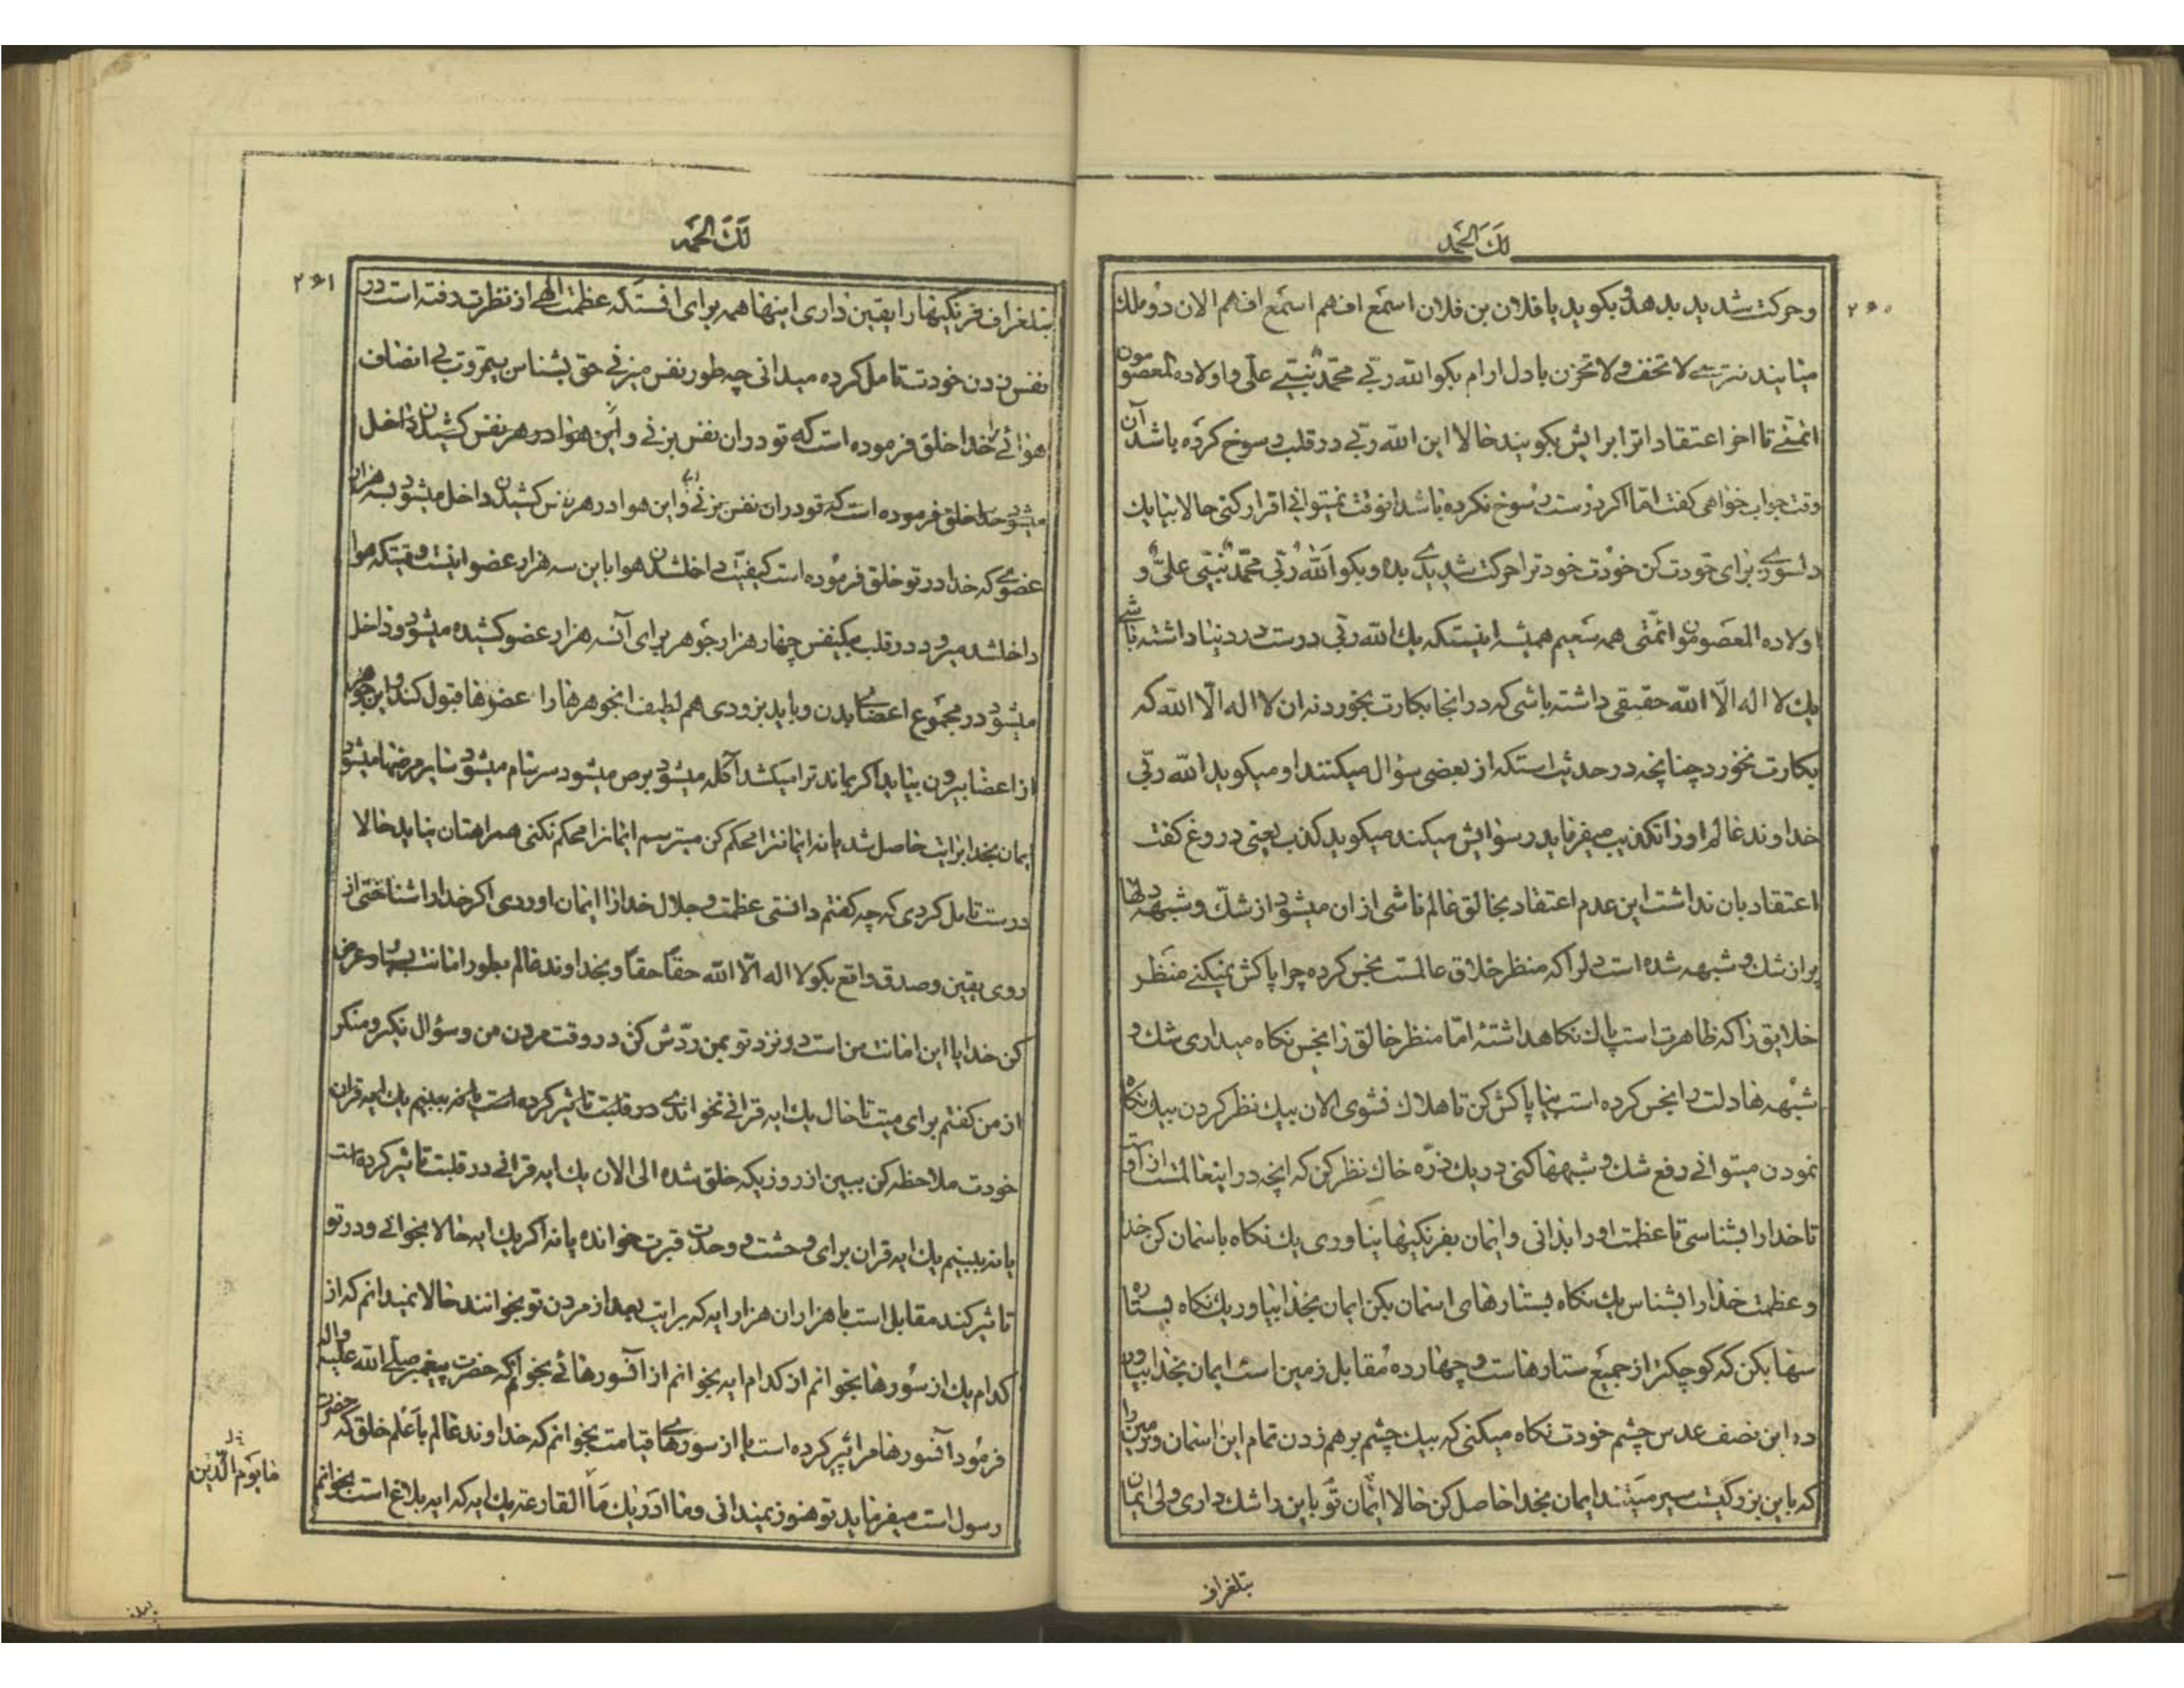 لَكَ الحَمد
۲۶۰
و حرکت شدید بدهد و بکوید یا فلان بن فلان اسمع افهم اسمع افهم الان دو ملك
میایند نترسے لا تخف و لا تحزن با دل ارام بکو الله ربّے محمّد نبیّے علی و اولاده المعصومون
ائمتے تا اخر اعتقادات را برایش بکویند حالا این الله ربّے در قلب رسوخ کرده باشد آن
وقت جواب خواهی کفت امّا اکر درست رسوخ نکرده باشد انوقت نمیتوانے اقرار کنی حالا بیا یك
دلسوزے برای خودت کن خودت خود ترا حرکت شدیدے بده و بکو الله ربّی محمّد نبیّی علیّ و
اولاده المعصومون ائمّتی همه سعیم همیشه اینستکه یك الله ربّی درست در دنیا داشته باشے
یك لا اله الّا الله حقیقی داشته باشی که در انجا بکارت بخورد نه ان لا اله الّا الله که
بکارت نخورد چنانچه در حدیث استکه از بعضی سؤال میکنند او میکوید الله ربّی
خداوند عالم او را تکذیب میفرماید رسوایش میکند میکوید کذب یعنی دروغ کفت
اعتقاد بان نداشت این عدم اعتقاد بخالق عالم ناشی از ان میشود از شكّ و شبهه دلها
پر از شك و شبهه شده است دل را که منظر خلاق عالمست نجس کرده چرا پاکش نمیکنے منظر
خلایق را که ظاهرت است پاك نکاهداشتهٔ امّا منظر خالق را نجس نکاه میداری شك و
شبهه ها دلت را نجس کرده است بیا پاکش کن تا هلاك نشوی الان بیك نظر کردن بیك نکاه
نمودن میتوانے رفع شك و شبهها کنی در یك ذرّه خاك نظر کن که انچه در اینعالمست از آنست
تا خدا را بشناسی تا عظمت او را بدانی و ایمان بفرنکیها نیاوری یك نکاه باسمان کن خدا
و عظمت خدا را بشناس یك نکاه بستارهای اسمان بکن ایمان بخدا بیاور یك نکاه بستاره
سها بکن که کوچکتر از جمیع ستارهاست و چهارده مقابل زمین است ایمان بخدا بیاور
ده این نصف عدس چشم خودت نکاه میکنی که بیك چشم برهم زدن تمام این اسمان و زمین را
که باین بزرکیست سیر میتند ایمان بخدا حاصل کن حالا ایمان تو باین را شك داری ولی ایمان
بتلغراف
لَكَ الحَمد
۲۶۱
بتلغراف فرنکیها را یقین داری اینها همه برای انستکه عظمت الهے از نظرت رفته است در
نفس زدن خودت تامل کرده میدانی چه طور نفس میزنے حق بشناس بیمروت بے انصاف
هوائے را خدا خلق فرموده است که تو در ان نفس بزنے و این هوا در هر نفس کشیدن داخل
میشود خدا خلق فرموده است که تو در ان نفس بزنے و این هوا در هر نفس کشیدن داخل میشود بسه هزار
عضوے که خدا در تو خلق فرموده است کیفیّت داخلشدن هوا باین سه هزار عضو اینست وقتیکه هوا
داخلشد میرود در قلب بیکنفس چهار هزار جوهر برای آنسه هزار عضو کشیده میشود و داخل
میشود در مجموع اعضاے بدن و باید بزودی هم لطیف انجوهرها را عضوها قبول کند و این جوهرها
از اعضا بیرون بیاید اکر بماند ترا میکشد آکله میشود برص میشود سرسام میشود سایر مرضها میشود
ایمان بخدا برایت حاصل شد یا نه ایمانترا محکم کن میترسم ایمانرا محکم نکنی همراهتان نیاید حالا
درست تامل کردی که چه کفتم دانستی عظمت و جلال خدا را ایمان اوردی اکر خدا را شناختی از
روی یقین و صدق واقع بکو لا اله الّا الله حقاً حقاً و بخداوند عالم بطور امانت بسپار و عرض
کن خدایا این امانت من است در نزد تو بمن ردّش کن در وقت مردن من و سؤال نکیر و منکر
از من کفتم برای میت تا حال یك ایه قرانے نخواندے در قلبت تاثیر کرده است یا نه ببینیم یك ایه قران
خودت ملاحظه کن ببین از روزیکه خلق شده الی الان یك ایه قرانے در قلبت تاثیر کرده است
یا نه ببینیم یك ایه قران برای وحشت و وحدت قبرت خوانده یا نه اکر یك ایه حالا بخوانے و در تو
تاثیر کند مقابل است با هزاران هزار ایه که برایت بعد از مردن تو بخوانند حالا نمیدانم که از
کدام یك از سورها بخوانم از کدام ایه بخوانم از آنسورهائے بخوانم که حضرت پیغمبر صلے الله علیه و اله
فرمود آنسورها مرا پیر کرده است یا از سورهاے قیامت بخوانم که خداوند عالم با علم خلق که حضرت
رسول است میفرماید تو هنوز نمیدانی و ما ادریك ما القارعه یك ایه که ایه بلاغ است بخوانم
ما یوم الدّین